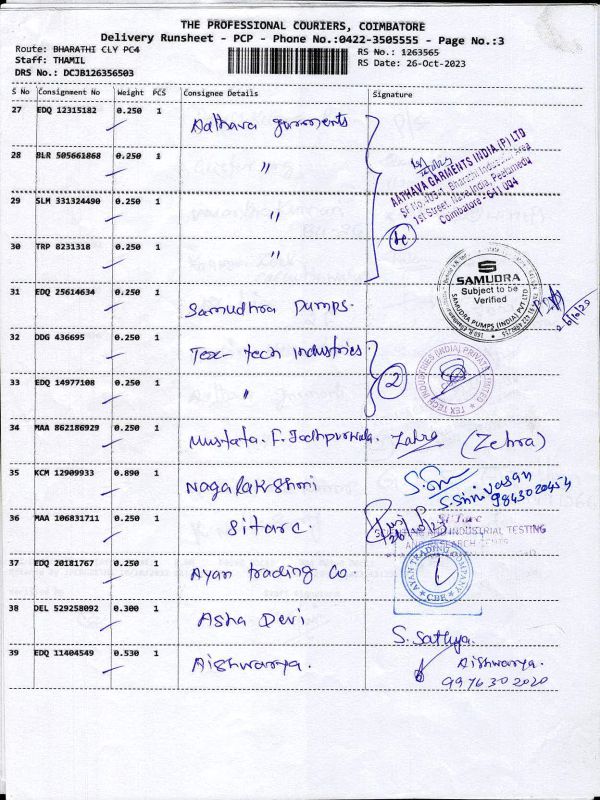 THE PROFESSIONAL COURIERS, COIMBATORE
Delivery Runsheet - PCP - Phone No.:0422-3505555 - Page No.:3
Route: BHARATHI CLY PC4
RS No.: 1263565
Staff: THAMIL
RS Date: 26-Oct-2023
DRS No.: DCJB126356503
S No Consignment No Weight PCS Consignee Details Signature
27 EDQ 12315182 0.250 1 Aathava garments
28 BLR 505661868 0.250 1 "
AATHAVA GARMENTS INDIA (P) LTD
1st Street, Nava India, Peelamedu
Coimbatore - 641 004
29 SLM 331324490 0.250 1 "
30 TRP 8231318 0.250 1 "
31 EDQ 25614634 0.250 1 Samudhra Pumps.
SAMUDRA
Subject to be
Verified
SAMUDRA PUMPS (INDIA) PVT LTD
32 DDG 436695 0.250 1 Tex-tech industries
33 EDQ 14977108 0.250 1 "
2
TEX TECH INDUSTRIES (INDIA) PRIVATE LIMITED
34 MAA 862186929 0.250 1 Mustafa. F. Jodhpurwala. Zahra (Zehra)
35 KCM 12909933 0.890 1 Nagalakshmi
S. Srinivasan
9843020454
36 MAA 106831711 0.250 1 Sitarc.
Si'Tarc
AND INDUSTRIAL TESTING
AND RESEARCH CENTRE
37 EDQ 20181767 0.250 1 Ayan trading Co.
AYAN TRADING COMPANY
CBE
38 DEL 529258092 0.300 1 Asha Devi
S. Sathya.
39 EDQ 11404549 0.530 1 Aishwarya.
Aishwarya.
9976302020